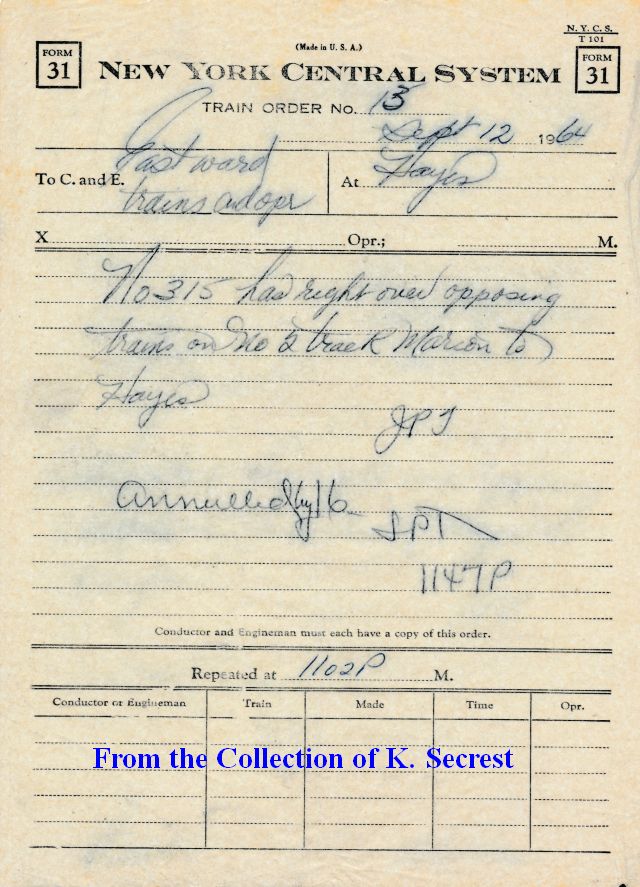 N. Y. C. S.
T 101
(Made in U. S. A.)
FORM 31
NEW YORK CENTRAL SYSTEM
FORM 31
TRAIN ORDER No. 13
Sept 12 1964
To C. and E. Eastward trains and opr
At Hayes
X Opr.; M.
No 315 has right over opposing
trains on No 2 track Marion to
Hayes
JPT
annulled by 16
JPT
1147P
Conductor and Engineman must each have a copy of this order.
Repeated at 1102P M.
Conductor or Engineman Train Made Time Opr.
From the Collection of K. Secrest